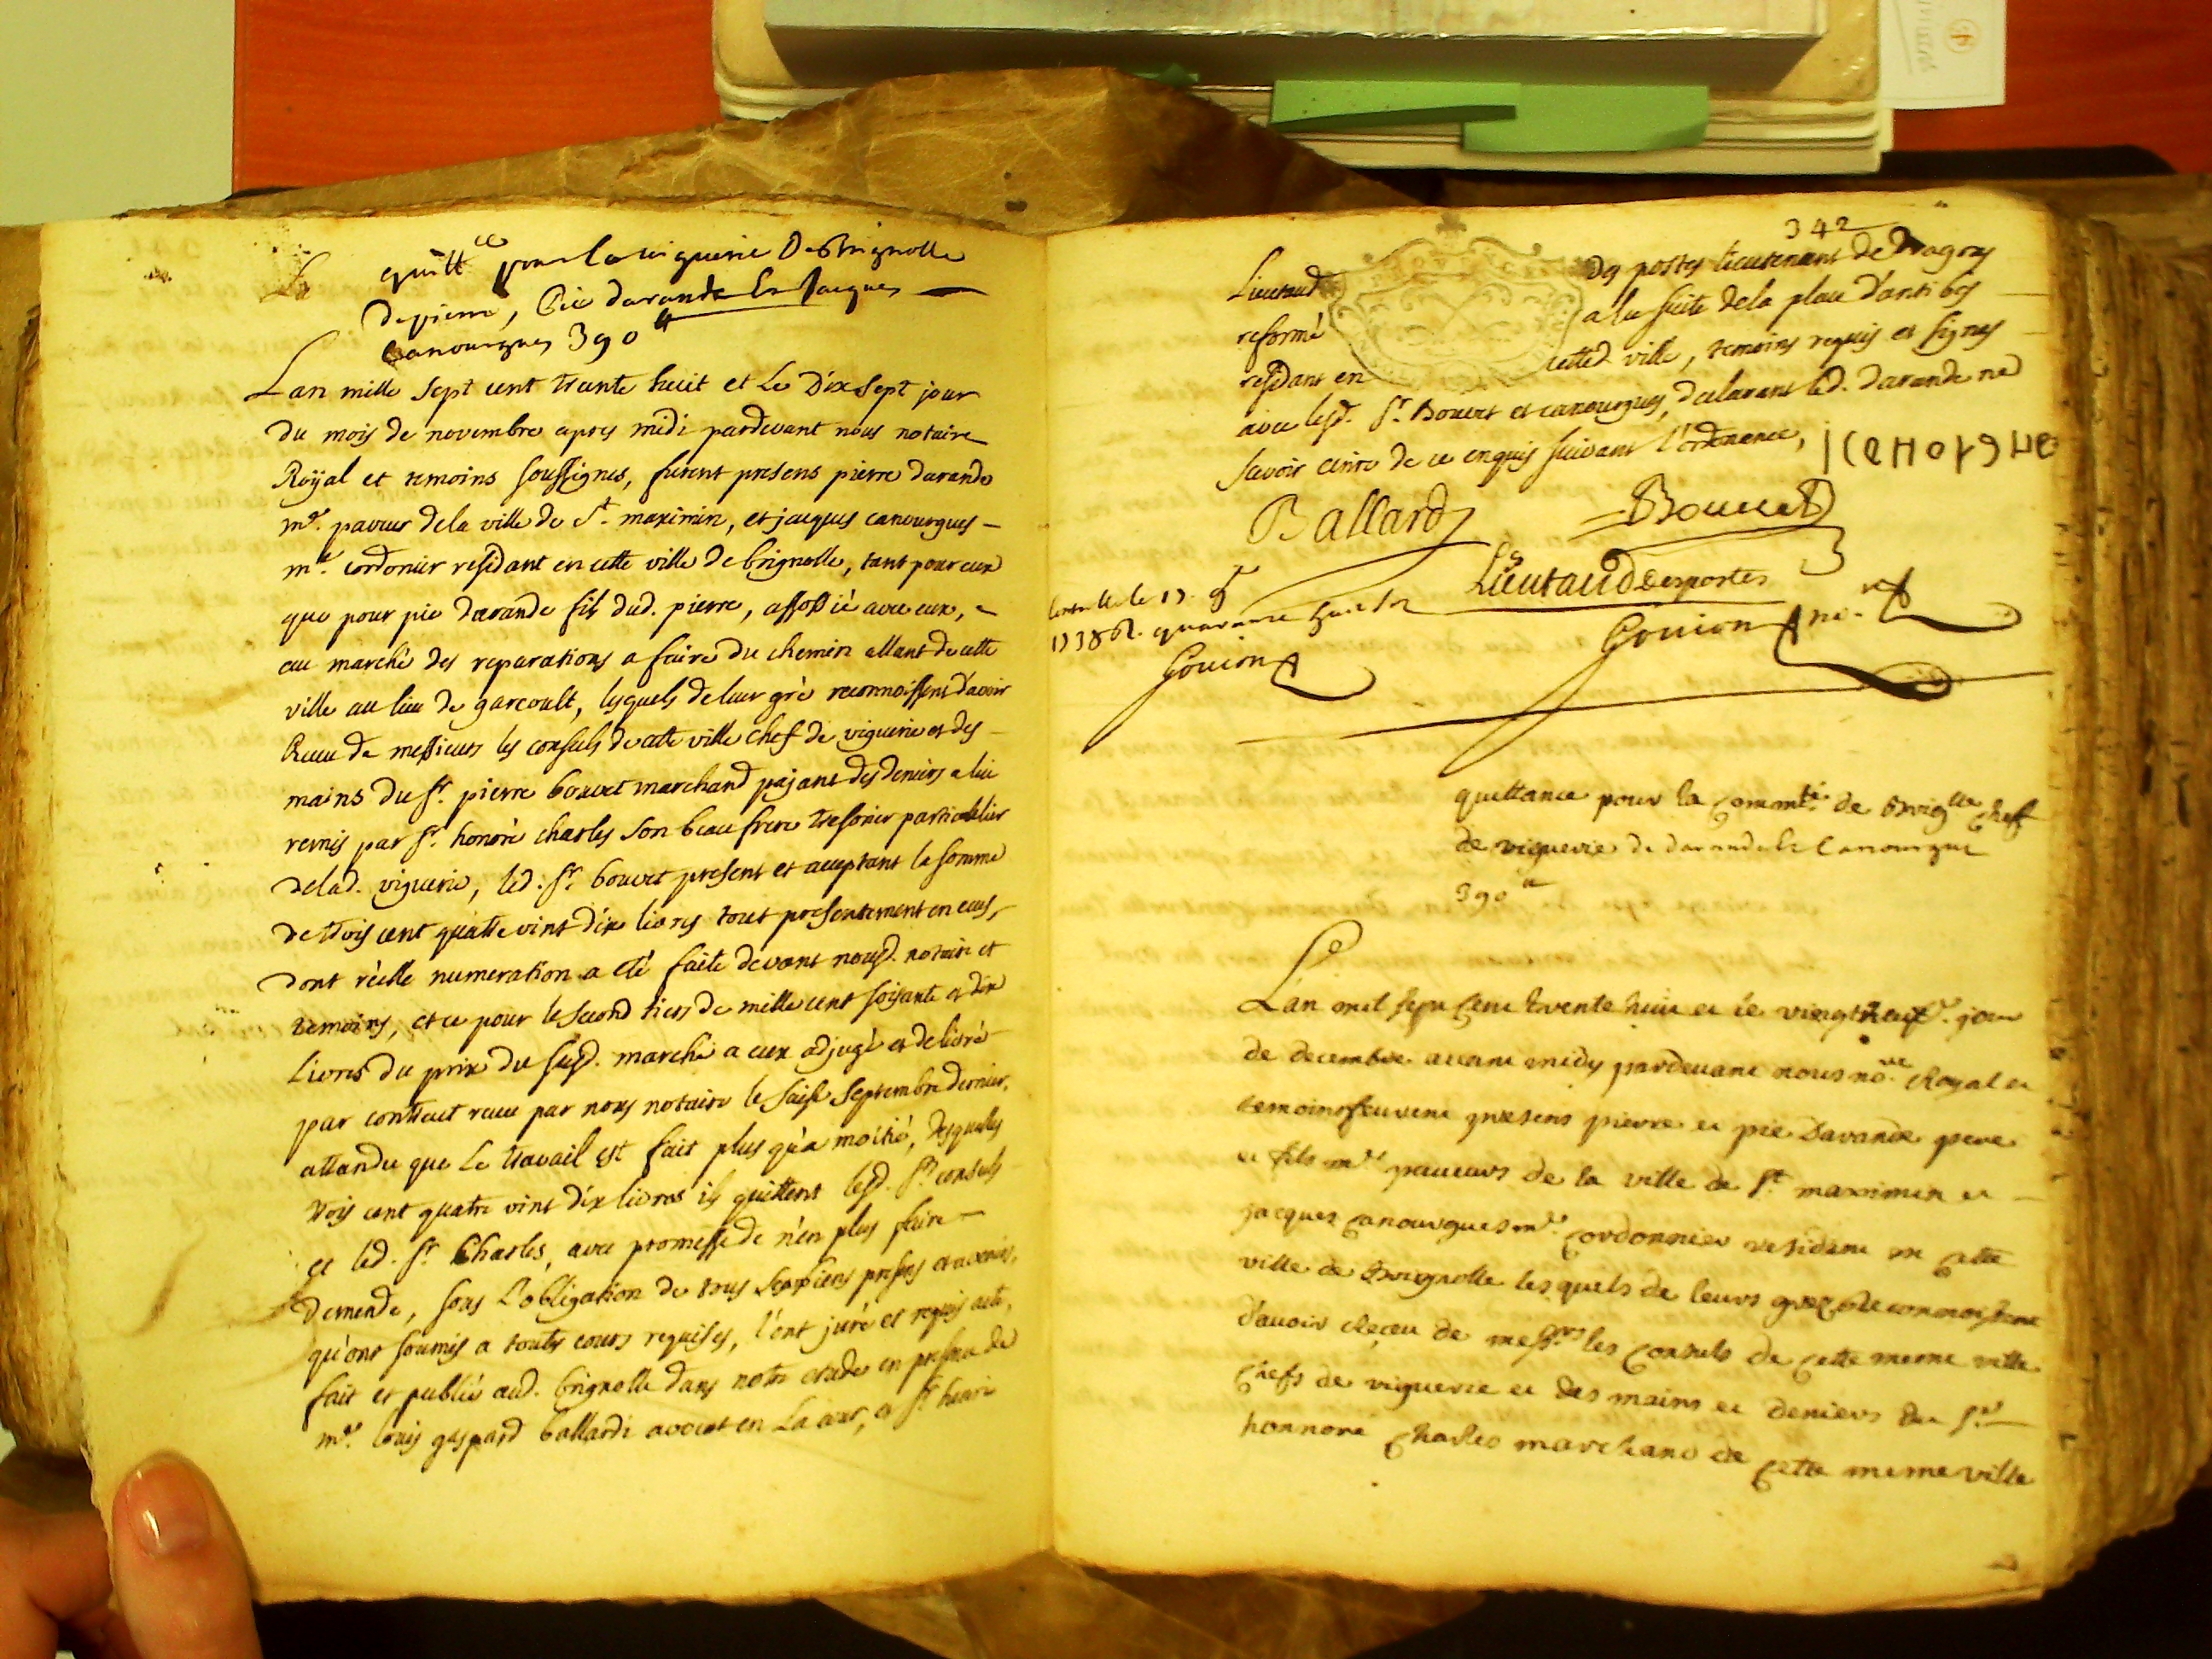 quitt.ce pour la viguerie De Brignolle
De pierre, Pie darande Et Jacques
Canourgues 390 ₶
L'an mille sept cent trante huit et Le Dix sept jour
du mois de novembre apres midi pardevant nous notaire
Roÿal et temoins soussignes, furent presens pierre darande
m.e paveur de la ville de S.t maximin, et jacques canourgues
m.e cordonier residant en cette ville de brignolle, tant pour eux
que pour pie darande fils dud. pierre, assossié avec eux,
au marché des reparations a faire du chemin allant de cette
ville au lieu de garcoult, lesquels de leur gré reconnoissent d'avoir
Receu de messieurs les consuls de cette ville chef de viguerie et des
mains du s.r pierre bouvet marchand pajant des deniers a lui
remis par s.r honoré charles son beau frere tresorier particulier
de lad. viguerie, led. s.r bouvet present et aceptant la somme
de trois cent quatte vint dix livres tout presentement en ecus,
dont réelle numeration a eté faite devant nousd. notaire et
temoins, et ce pour le second tiers de mille cent soisante et dix
livres du prix du susd. marché a eux adjugé et delivré
par contract receu par nous notaire le saise septembre dernier,
attandu que Le travail est fait plus qu'a moitié, desquelles
trois cent quatre vint dix livres ils quittent lesd. s.rs consuls
et led. s.r Charles, avec promesse de n'en plus faire
demende, sous L'obligation de tous ses biens presens et avenir,
qu'ont soumis a toutes cours requises, l'ont juré et requis acte,
fait et publié aud. brignolle dans notre etude en presence de
m.e louis gaspard ballardi avocat en La cour, et s.r henri
342
Lieutaud des postes lieutenant de Dragons
reformé a la suite de la place d'antibes
residant en cetted. ville, temoins requis et signes
avec lesd. s.r Bouvet et canourgues, declarant led. darande ne
savoir ecrire de ce enquis suivant l'ordonance,
Ballardy
Bouvet
Lieutaud Desportes
Controllé le 17. 9
1738 R. quarante huit s
Gouion
Gouion no.re
quittance pour la Comun.té de Brig.lle Chef
de viguerie de darande Et Canourgue
390 ₶
L'an mil sept Cent trente huit et le vingt neuf.e jour
de decembre avant midy pardevant nous no.re Royal et
temoins feurent presens pierre et pie Darande pere
et fils m.es paveurs de la ville de S.t maximin et
jacques Canourgues m.e Cordonnier residant en Cette
ville de Brignolle lesquels de leurs grez Reconnoissent
d'avoir Receu de mess.rs les Consuls de Cette meme ville
Chefs de viguerie et des mains et deniers du s.r
honnoré Charles marchand de Cette meme ville